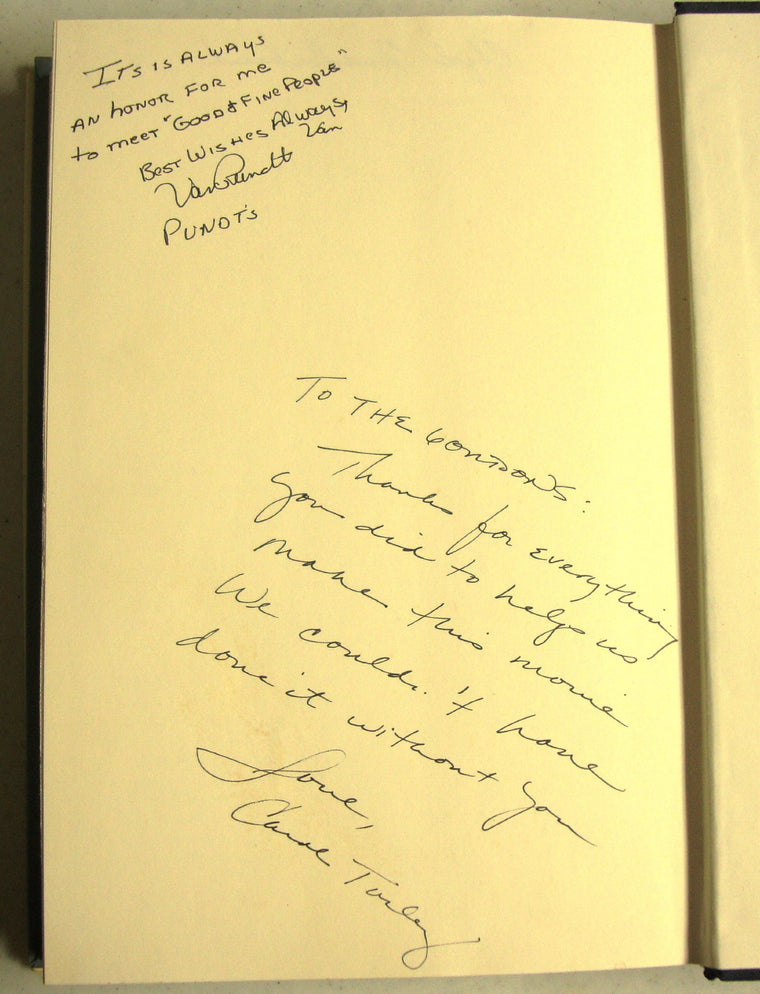 ITS IS ALWAYS
AN HONOR FOR me
to meet "GOOD & FINE PEOPLE"
BEST WISHES Always,
Van
Van Pundt
PUNDT'S
TO THE GONTDON'S:
Thanks for everything
you did to help us
make this movie
We couldn't have
done it without you
Love,
Carole Turley